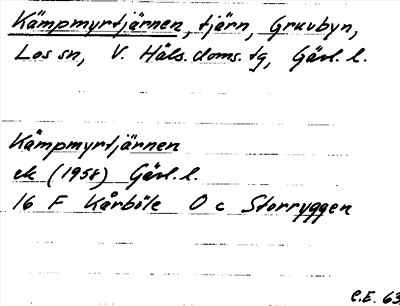 Kämpmyrtjärnen, tjärn, Gruvbyn,
Los sn, V. Häls. doms. tg, Gävl. l.
Kämpmyrtjärnen
ek (1958) Gävl. l.
16 F Kårböle O c Storryggen
C.E. 63